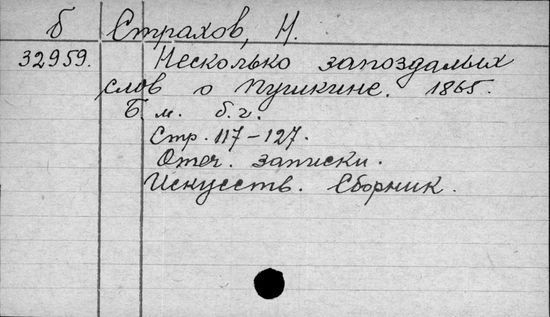 б Страхов, Н.
32959. Несколько запоздалых
слов о Пушкине. 1865.
Б. м. б. г.
Стр. 117-127.
Отеч. записки.
Искусств. Сборник.